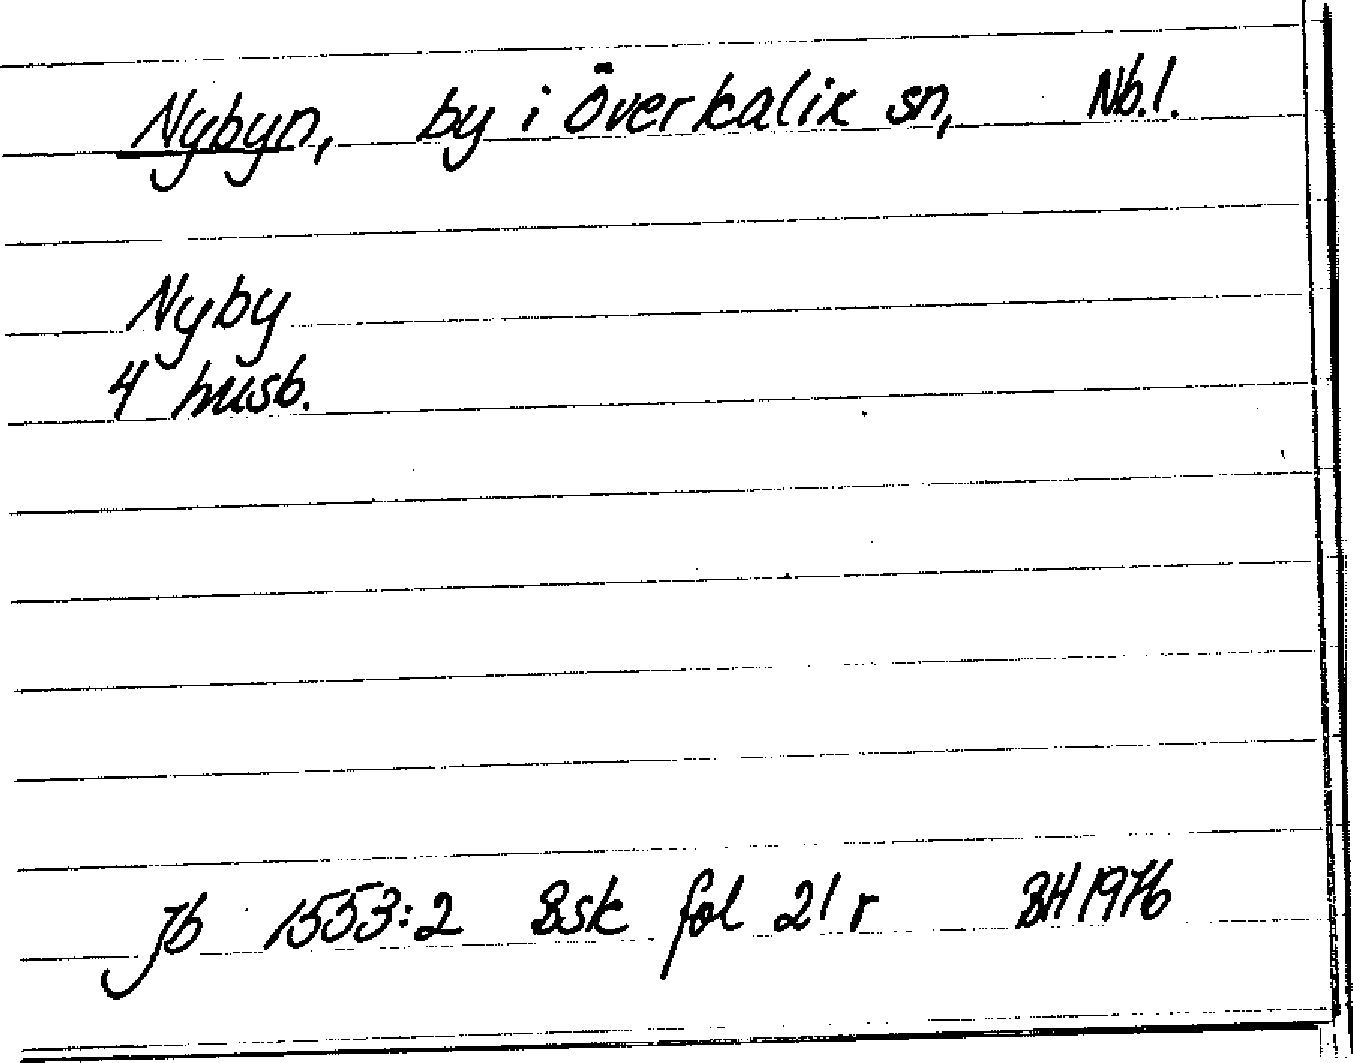 Nybyn, by i Överkalix sn, Nb.l.
Nyby
4 husb.
Jb 1553:2 Bsk fol 21 r BH 1976